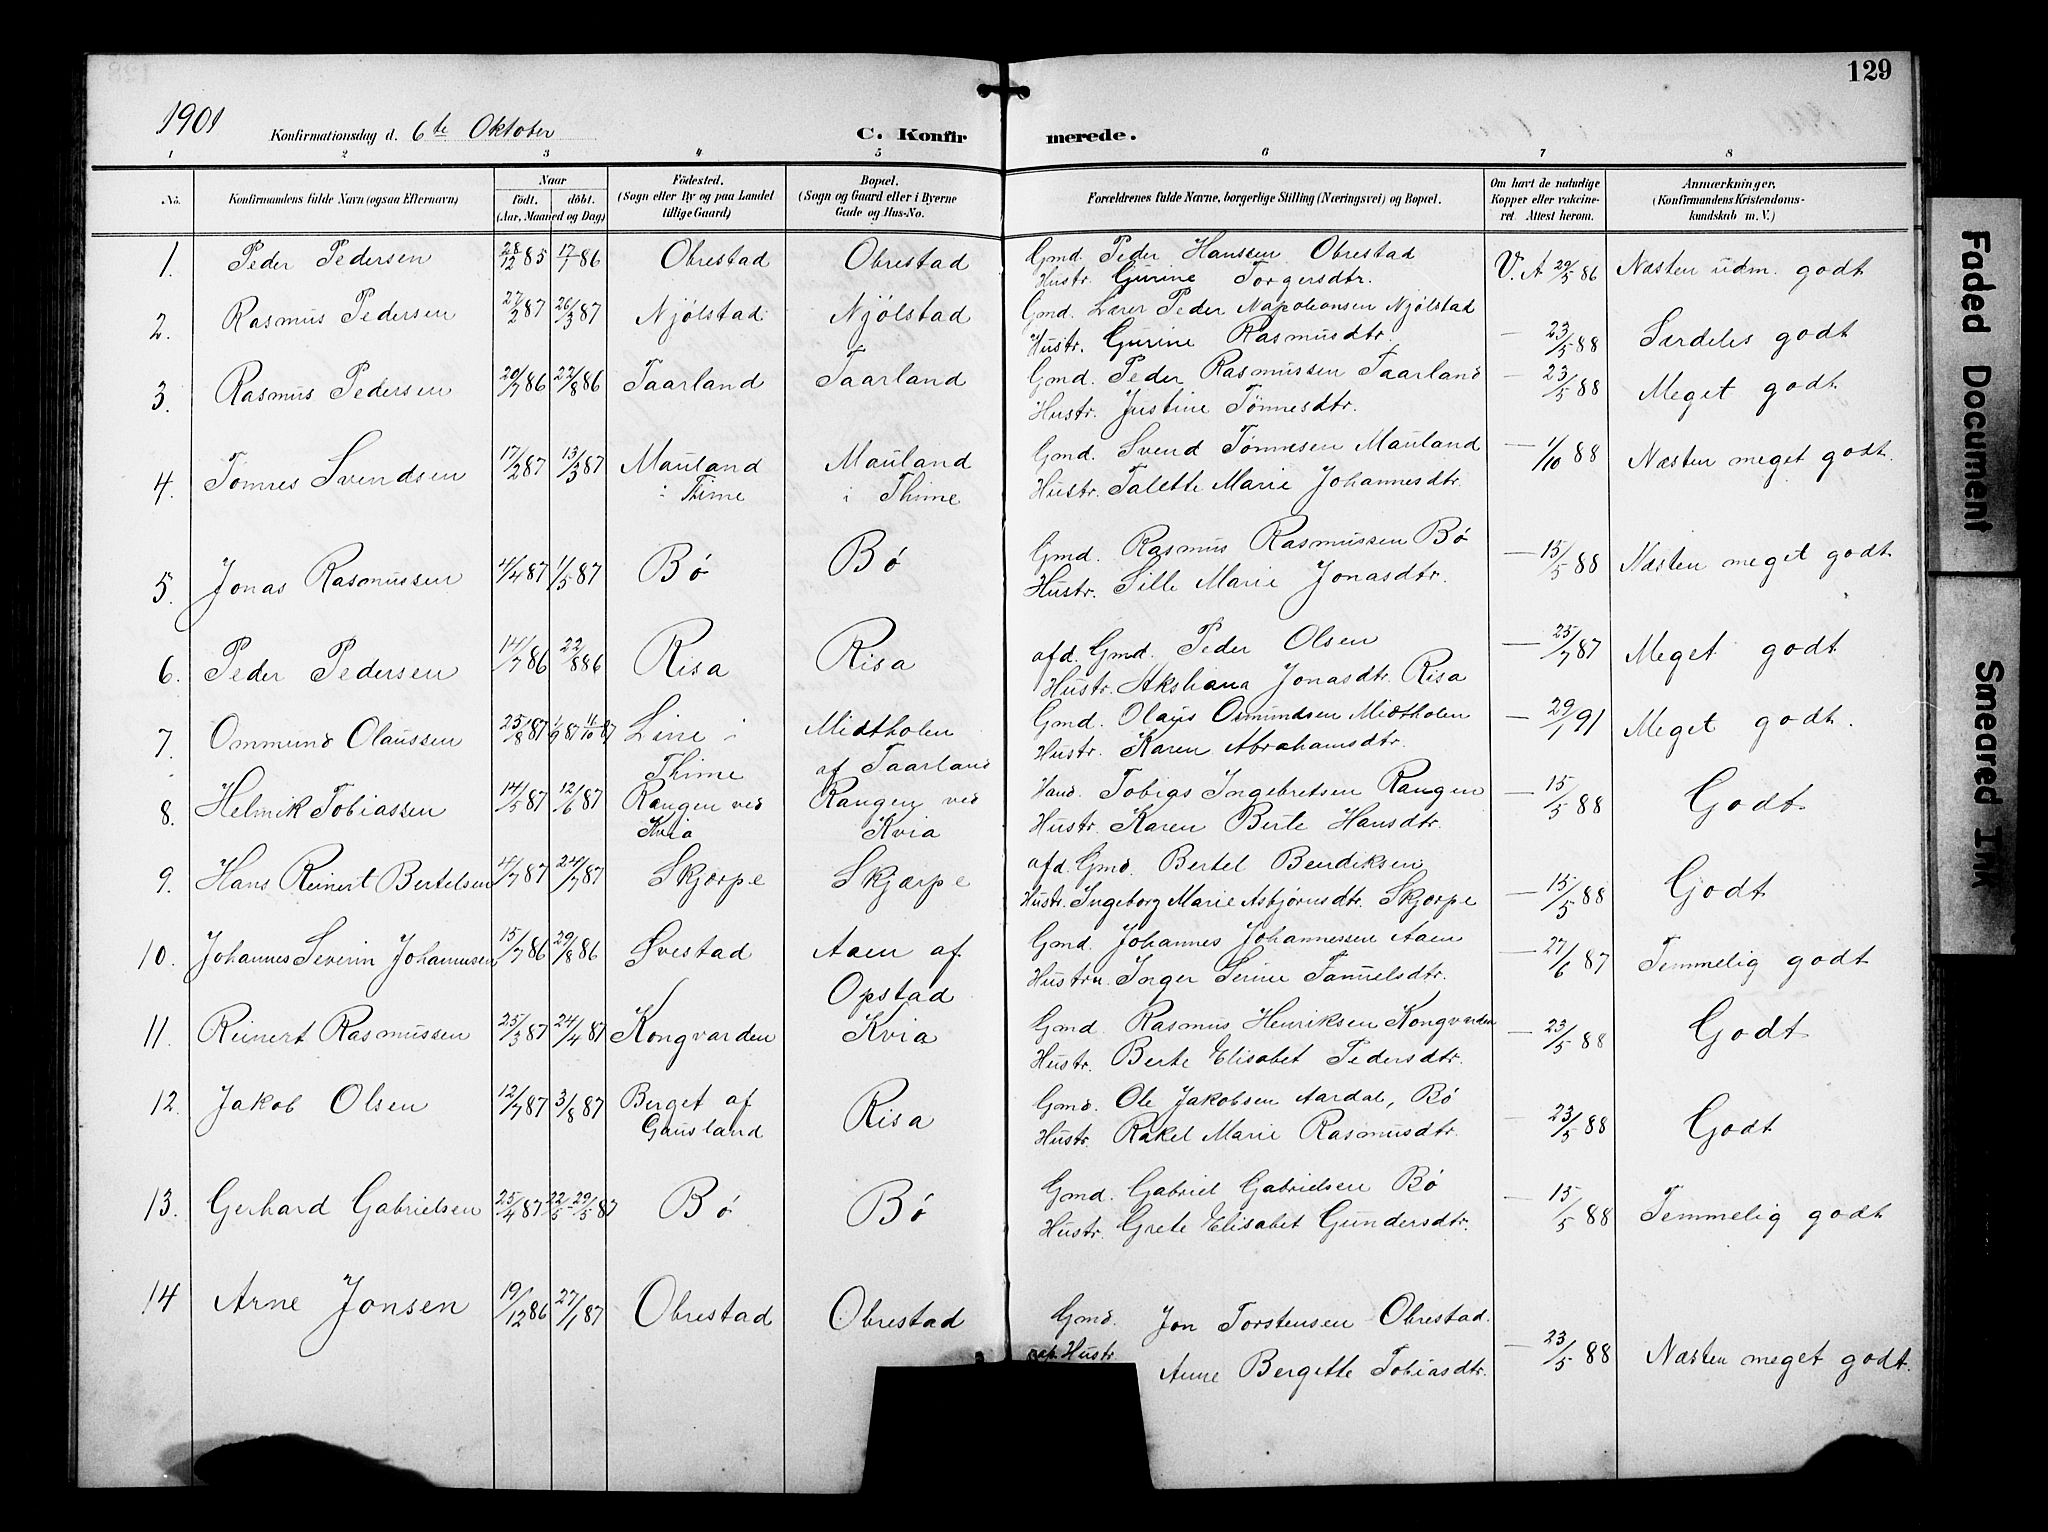 129
1901
Konfirmationsdag d. 6te Oktober
C. Konfir merede.
1 2 3 4 5 6 7 8
No.
Konfirmandens fulde Navn (ogsaa Efternavn)
Naar
födt. döbt.
(Aar, Maaned og Dag)
Födested.
(Sogn eller By og paa Landet
tillige Gaard)
Bopæl.
(Sogn og Gaard eller i Byerne
Gade og Hus-No.
Forældrenes fulde Navne, borgerlige Stilling (Næringsvei) og Bopæl.
Om havt de naturlige
Kopper eller vakcine-
ret. Attest herom.
Anmærkninger.
(Konfirmandens Kristendoms-
kundskab m. V.)
1. Peder Pedersen 28/12 85 17/1 86 Obrestad Obrestad Gmd. Peder Hanssen Obrestad V. A 29/5 86 Næsten udm. godt
Hustr. Gurine Torgersdtr.
2. Rasmus Pedersen 27/2 87 26/3 87 Njølstad Njølstad Gmd. Lærer Peder Napoleonsen Njølstad
Hustr. Gurine Rasmusdtr. — 23/5 88 Særdeles godt
3. Rasmus Pedersen 20/7 86 22/8 86 Taarland Taarland Gmd. Peder Rasmussen Taarland — 23/5 88 Meget godt
Hustr. Justine Tønnesdtr.
4. Tønnes Svendsen 17/2 87 13/3 87 Mauland Mauland Gmd. Svend Tønnesen Mauland — 1/10 88 Næsten meget godt.
i Thime i Thime Hustr. Talette Marie Johannesdtr.
5. Jonas Rasmussen 4/4 87 1/5 87 Bø Bø Gmd. Rasmus Rasmussen Bø — 15/5 88 Næsten meget godt
Hustr. Sille Marie Jonasdtr.
6. Peder Pedersen 14/7 86 22/8 86 Risa Risa afd. Gmd. Peder Olsen — 25/7 87 Meget godt
Hustr. Jonasdtr. Risa
7. Ommund Olaussen 25/8 87 1/9 87 11/10 87 Line i Midtholen Gmd. Olaus Osmundsen Midtholen — 29/1 91 Meget godt.
Thime af Taarland Hustr. Karen Abrahamsdtr.
8. Helmik Tobiassen 14/5 87 12/6 87 Rangen ved Rangen ved Tobias Ingebretsen Rangen — 15/5 88 Godt
Kvia Kvia Hustr. Karen Berte Hansdtr.
9. Hans Reinert Bertelsen 4/7 87 24/7 87 Skjærpe Skjærpe afd. Gmd. Bertel Bendiksen
Hustr. Ingeborg Marie Asbjørnsdtr. Skjærpe — 15/5 88 Godt
10. Johannes Severin Johannesen 15/7 86 29/8 86 Svestad Aaen af Gmd. Johannes Johannessen Aaen — 27/6 87 Temmelig godt
Opstad Hustru Inger Serine Samuelsdtr.
11. Reinert Rasmussen 25/3 87 24/4 87 Kongvarden Kvia Gmd. Rasmus Henriksen Kongvarden — 23/5 88 Godt
Hustr. Berte Elisabet Pedersdtr.
12. Jakob Olsen 12/7 87 3/8 87 Berget af Risa Gmd. Ole Jakobsen Aardal, Bø — 23/5 88 Godt
Gausland Hustr. Rakel Marie Rasmusdtr.
13. Gerhard Gabrielsen 25/4 87 22/5 - 29/5 87 Bø Bø Gmd. Gabriel Gabrielsen Bø — 15/5 88 Temmelig godt
Hustr. Grete Elisabet Gundersdtr.
14 Arne Jonsen 19/12 86 27/1 87 Obrestad Obrestad Gmd. Jon Torstensen Obrestad. — 23/5 88 Næsten meget godt.
Hustr. Anne Bergitte Tobiasdtr.
Faded Document
Smeared Ink